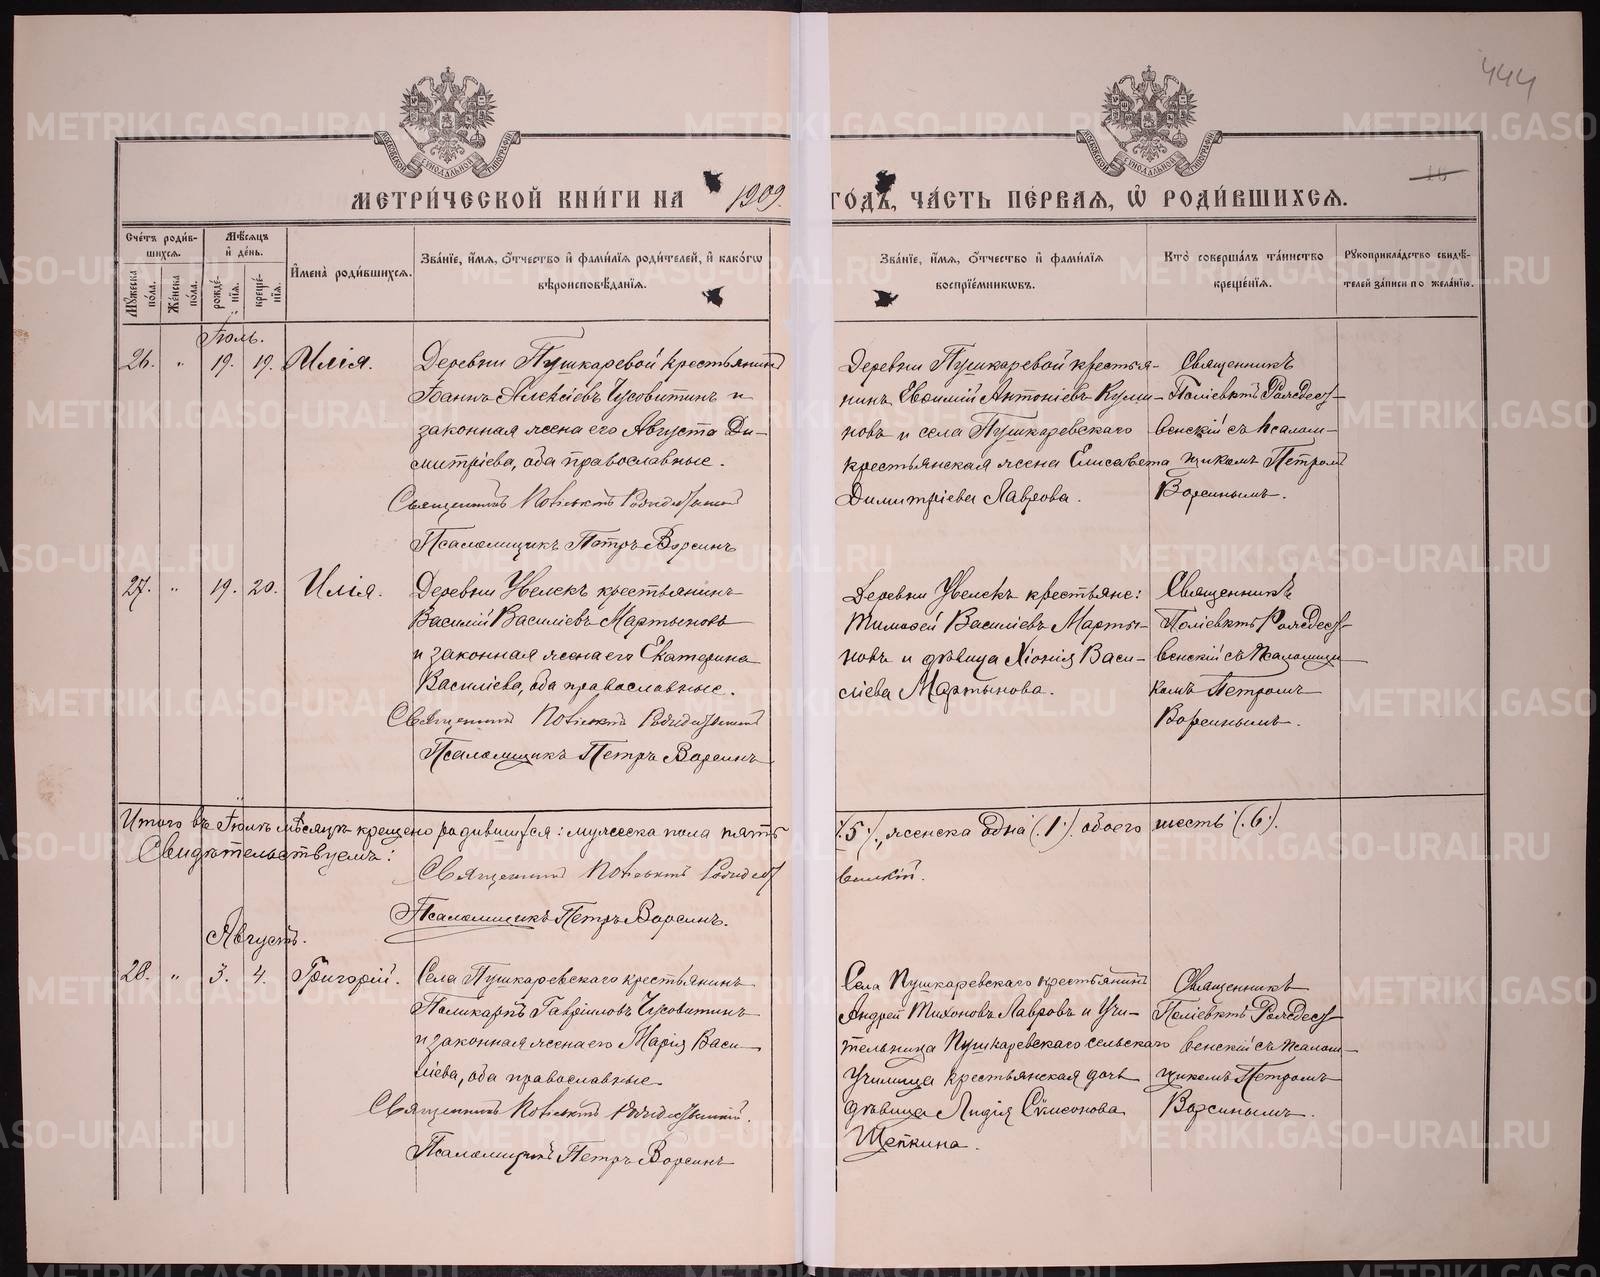 444
18
МЕТРИ́ЧЕСКОЙ КНИ́ГИ НА 1909. ГОДЪ, ЧА́СТЬ ПЕ́РВАЯ, Ѡ РОДИ́ВШИХСЯ.
Сче́тъ роди́в-
шихся.
Му́жеска по́ла.
Же́нска по́ла.
Мѣ́сяцъ и҆ де́нь.
рожде́-
нїѧ.
креще́-
нїѧ.
И҆мена̀ роди́вшихсѧ.
Зва́нїе, и҆́мѧ, ѻ҆́тчество и҆ фами́лїѧ роди́телей, и҆ како́гѡ
вѣроисповѣ́данїѧ.
Зва́нїе, и҆́мѧ, ѻ҆́тчество и҆ фами́лїѧ
воспрїе́мникѡвъ.
Кто̀ соверша́лъ та́инство
креще́нїѧ.
Рꙋкоприкла́дство свидѣ́-
телей за́писи по жела́нїю.
Іюль.
26. " 19. 19. Илія.
Деревни Пушкаревой крестьянинъ
Іоаннъ Алексіевъ Чусовитинъ и
законная жена его Августа Ди-
митріева, оба православные.
Священникъ Поліевктъ
Псаломщикъ Петръ Ворсинъ
Деревни Пушкаревой крестья-
нинъ Евѳимій Антоніевъ Кули-
ковъ и села Пушкаревскаго
крестьянская жена Елисавета
Димитріева Лаврова.
Священникъ
Поліевктъ Рождест-
венскій съ псалом-
щикомъ Петромъ
Ворсинымъ.
27. " 19. 20. Илія.
Деревни Увелекъ крестьянинъ
Василій Василіевъ Мартыновъ
и законная жена его Екатерина
Василіева, оба православные.
Священникъ Поліевктъ
Псаломщикъ Петръ Ворсинъ
Деревни Увелекъ крестьяне:
Тимоѳей Василіевъ Марты-
новъ и дѣвица Хіонія Васи-
ліева Мартынова.
Священникъ
Поліевктъ Рождест-
венскій съ псаломщи-
комъ Петромъ
Ворсинымъ.
Итого въ Іюлѣ мѣсяцѣ крещено родившихся: мужеска пола пять (.5.), женска одна (.1.) обоего шесть (.6.).
Свидѣтельствуемъ:
Священникъ Поліевктъ Рождест
венскій.
Псаломщикъ Петръ Ворсинъ.
Августъ.
28. " 3. 4. Григорій.
Села Пушкаревскаго крестьянинъ
Поликарпъ Гавріиловъ Чусовитинъ
и законная жена его Марія Васи-
ліева, оба православные.
Священникъ Поліевктъ Рождественскій.
Псаломщикъ Петръ Ворсинъ
Села Пушкаревскаго крестьянинъ
Андрей Тихоновъ Лавровъ и Учи-
тельница Пушкаревскаго сельскаго
Училища крестьянская дочь
дѣвица Лидія Сѷмеонова
Щепкина.
Священникъ
Поліевктъ Рождест-
венскій съ псалом-
щикомъ Петромъ
Ворсинымъ.
METRIKI.GASO-URAL.RU